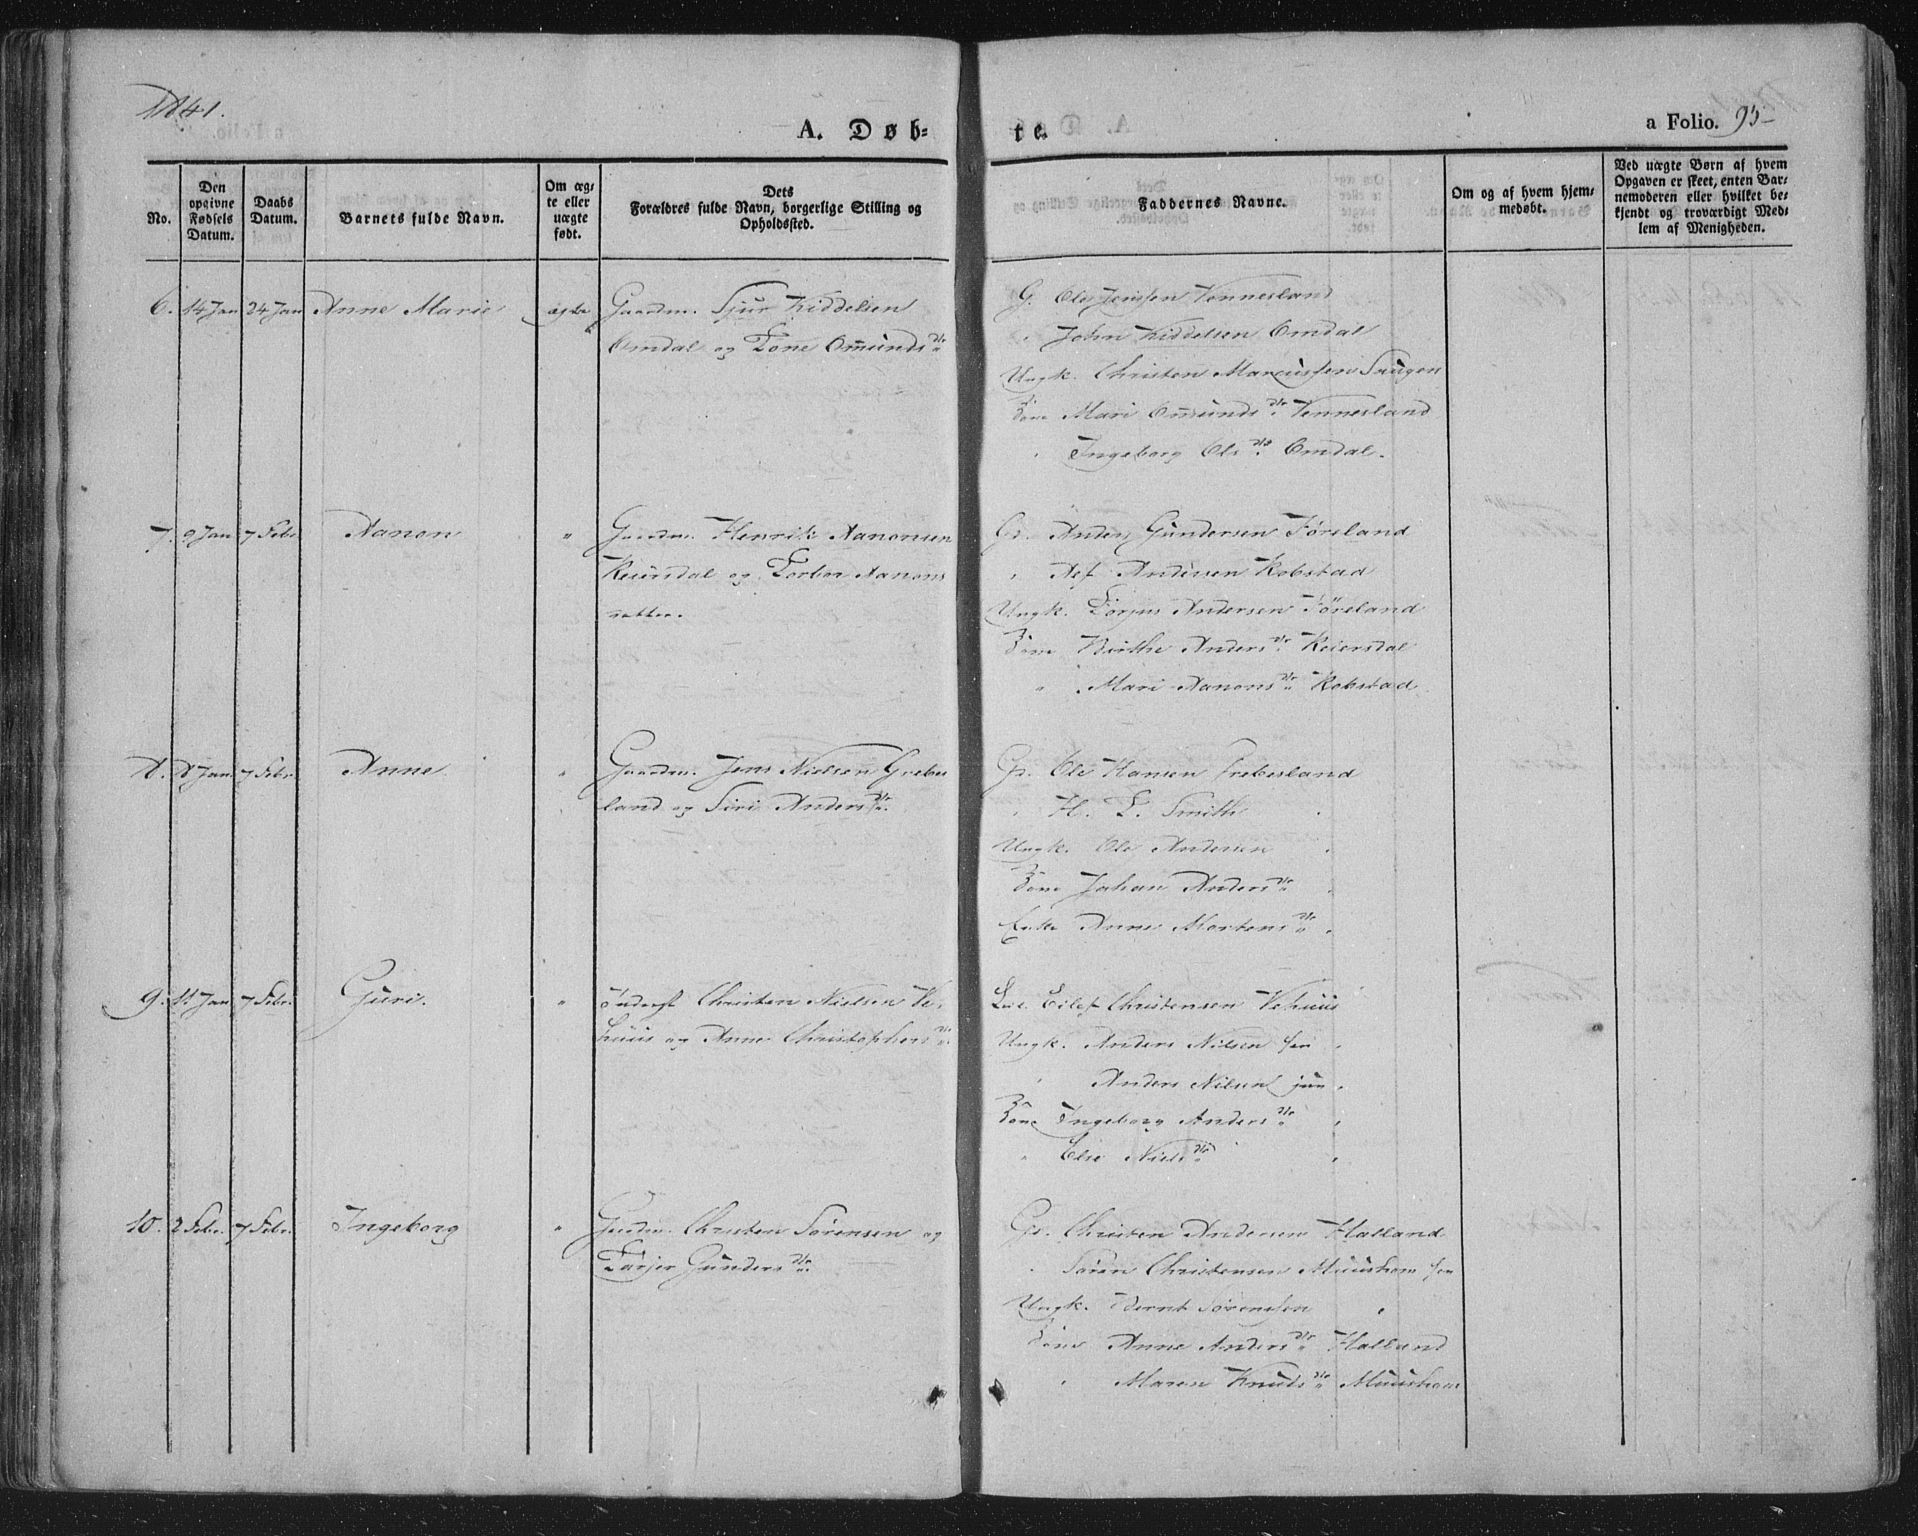 1841.
A. Døb-
te.
a Folio. 95
No.
Den
opgivne
Fødsels
Datum.
Daabs
Datum.
Barnets fulde Navn.
Om æg-
te eller
uægte
født.
Dets
Forældres fulde Navn, borgerlige Stilling og
Opholdssted.
Faddernes Navne.
Om og af hvem hjem-
medøbt.
Ved uægte Børn af hvem
Opgaven er skeet, enten Bar-
nemoderen eller hvilket be-
kjendt og troværdigt Med-
lem af Menigheden.
6. 14 Jan 24 Jan Anne Marie ægte Gaardm. Sjur Kiddelsen
Omdal og Tone Omunds dtr
G. Ole Jensen Vennesland
" John Kiddelsen Omdal
Ungk. Christen Marcussen Saugen
Kone Mari Omunds dtr Vennesland
" Ingeborg Ols dtr Omdal.
7. 9 Jan 7 Febr. Aanon " Gaardm. Henrik Aanonsen
Keiersdal og Torbor Aanons
datter.
G. Anders Gundersen Føreland
" Aef Andersen Robstad
Ungk. Torjus Andersen Føreland
Kone Birthe Anders dtr Keiersdal
" Mari Aanons dtr Robstad
8. 8 Jan 7 Febr. Anne " Gaardm. Jens Nielsen Grebes
land og Siri Anders dtr.
G. Ole Hansen Grebesland
" H. L. Smith "
Ungk. Ole Andersen "
Kone Johan Anders dtr "
Enke Anne Mortens dtr "
9. 11 Jan 7 Febr. Guri. " Inderst Christen Nielsen Ve-
huus og Anne Christophers dtr
Eilef Christensen Vehuus
Ungk. Anders Nilsen sen "
" Anders Nilsen jun "
Kone Ingeborg Anders dtr "
" Else Niels dtr "
10. 2 Febr. 7 Febr. Ingeborg " Gaardm. Christen Sørensen og
Tarjer Gunders dtr
G. Christen Andersen Halland
" Søren Christensen Muushom sen
Ungk. Bernt Sørensen "
Kone Anne Anders dtr Halland
" Maren Knuds dtr Muushom